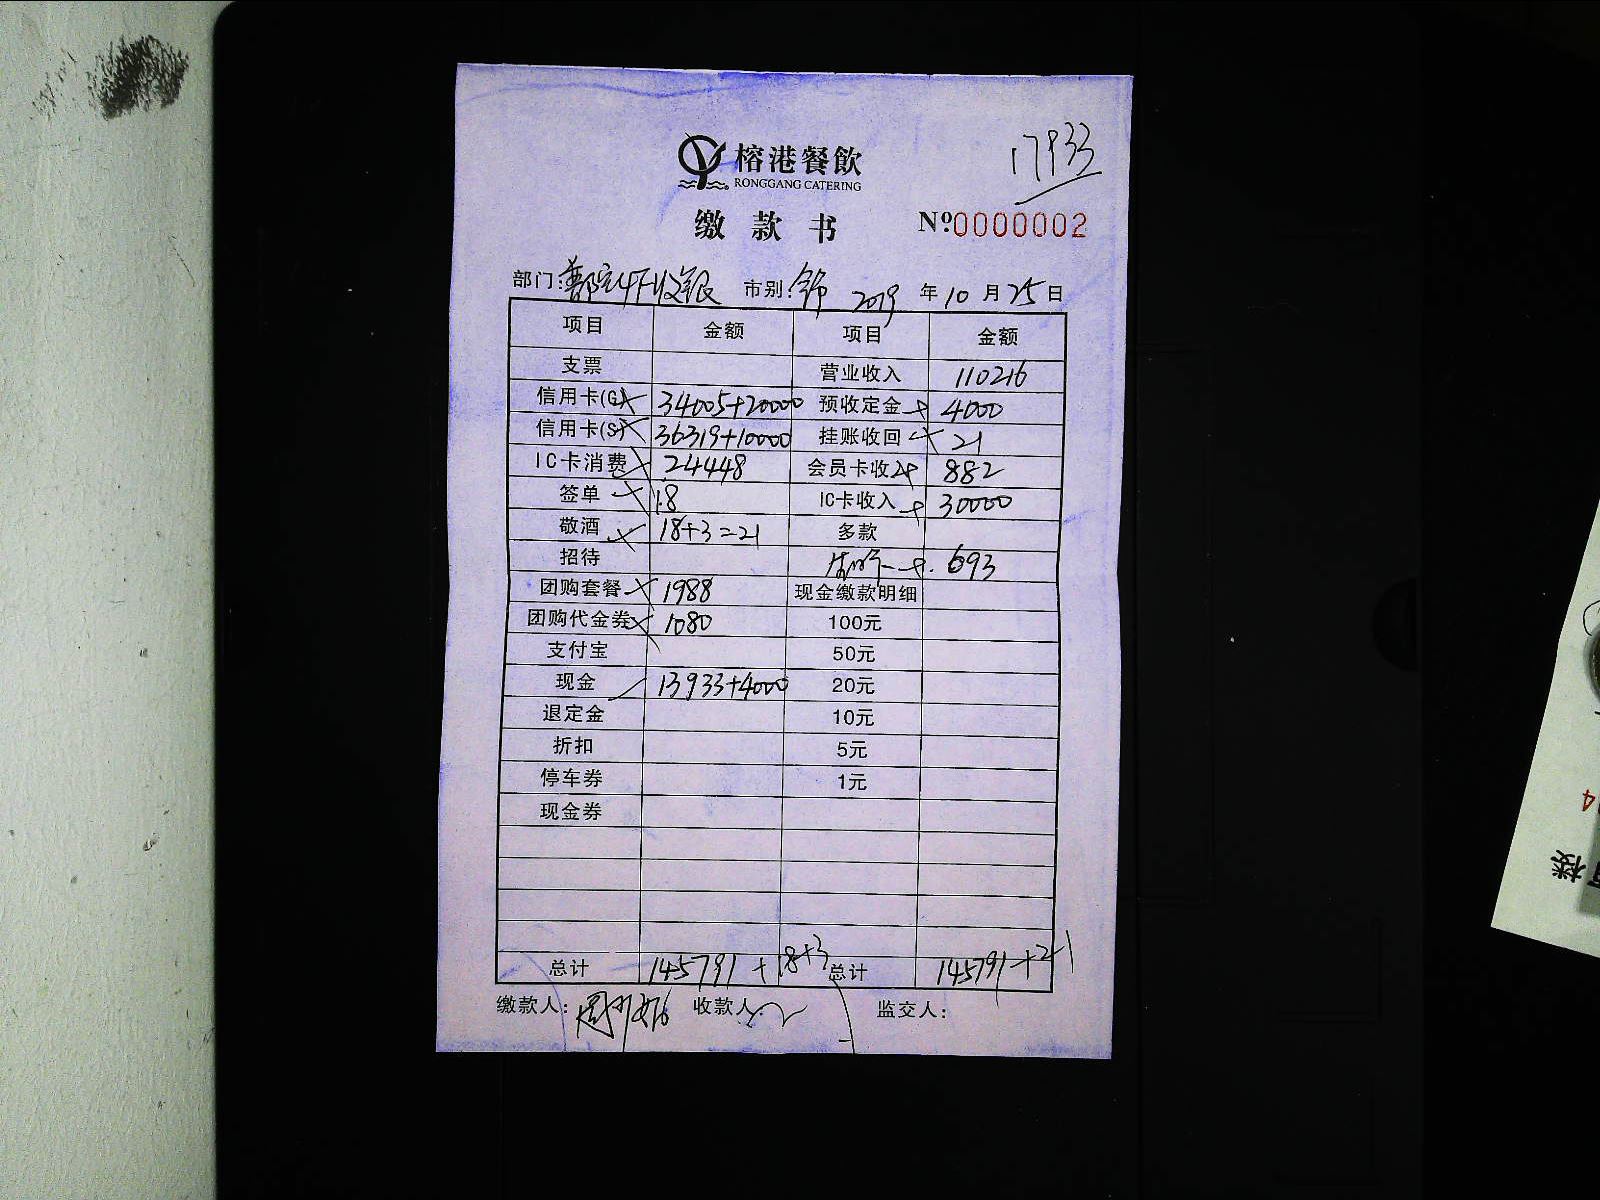 17933
榕港餐飲
RONGGANG CATERING
缴 款 书 Nº0000002
部门: 4F收银 市别: 2019 年 10 月 25 日
项目 金额 项目 金额
支票 营业收入 110216
信用卡(G) 34005+20000 预收定金 4000
信用卡(S) 36319+10000 挂账收回 21
IC卡消费 24448 会员卡收 882
签单 18 IC卡收入 30000
敬酒 18+3=21 多款
招待 693
团购套餐 1988 现金缴款明细
团购代金券 1080 100元
支付宝 50元
现金 13933+4000 20元
退定金 10元
折扣 5元
停车券 1元
现金券
总计 145791+18+3 总计 145791+21
缴款人: 收款人: 监交人:
楼